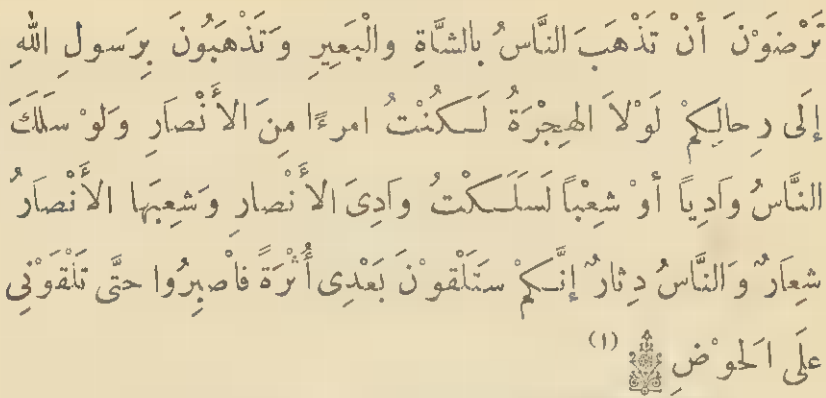 تَرْضَوْنَ أَنْ تَذْهَبَ النَّاسُ بِالشَّاةِ وَالْبَعِيرِ وَتَذْهَبُونَ بِرَسولِ اللهِ
إِلَى رِحالِكُمْ لَوْلاَ الهِجْرَةُ لَكُنْتُ امرءًا مِنَ الأَنْصارِ وَلَوْ سَلَكَ
النَّاسُ وَادِياً أَوْ شِعْباً لَسَلَكْتُ وَادِىَ الأَنْصارِ وَشِعبَها الأَنْصَارُ
شِعَارٌ وَالنَّاسُ دِثارٌ إِنَّكُمْ سَتَلْقَوْنَ بَعْدِى أُثْرَةً فَاصْبِرُوا حتَّى تَلْقَوْنِى
عَلَى الَحوْضِ (١)